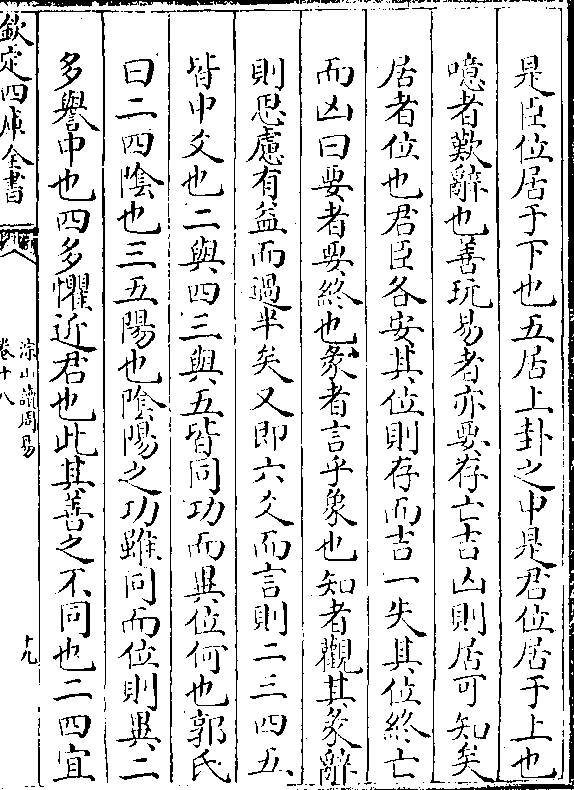 是臣位居于下也五居上卦之中是君位居于上也
噫者歎辭也善玩易者亦要存亡吉凶則居可知矣
居者位也君臣各安其位則存而吉一失其位終亡
而凶曰要者要終也彖者言乎象也知者觀其彖辭
則思慮有益而過半矣又即六爻而言則二三四五
皆中爻也二與四三與五皆同功而異位何也郭氏
曰二四陰也三五陽也陰陽之功雖同而位則異二
多譽中也四多懼近君也此其善之不同也二四宜
欽定四庫全書
淙山讀周易
卷十八
十九